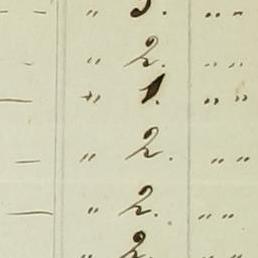 — — " 3. " "
— " 2. " "
— " 1. " "
— " 2. " "
— " 2. " "
" 2.